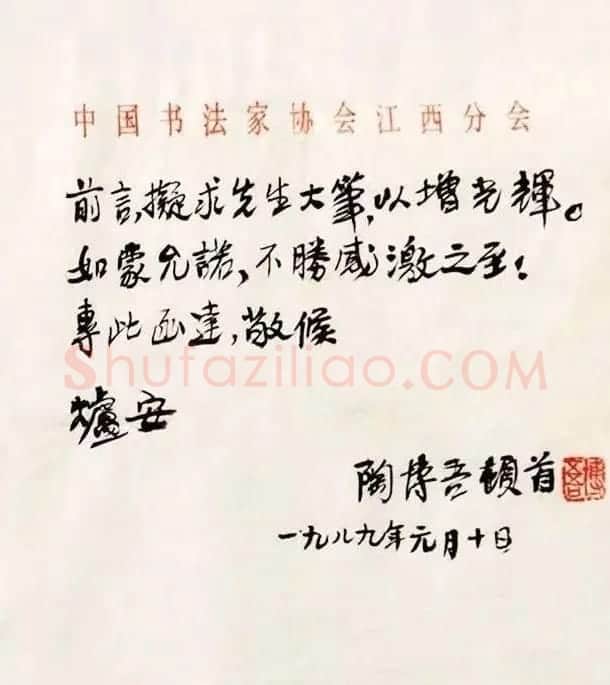 中国书法家协会江西分会
前言,擬求先生大筆,以增光輝。
如蒙允諾,不勝感激之至!
專此函達,敬候
Shufaziliao.COM
爐安
陶博吾頓首
博吾
一九八九年元月十日